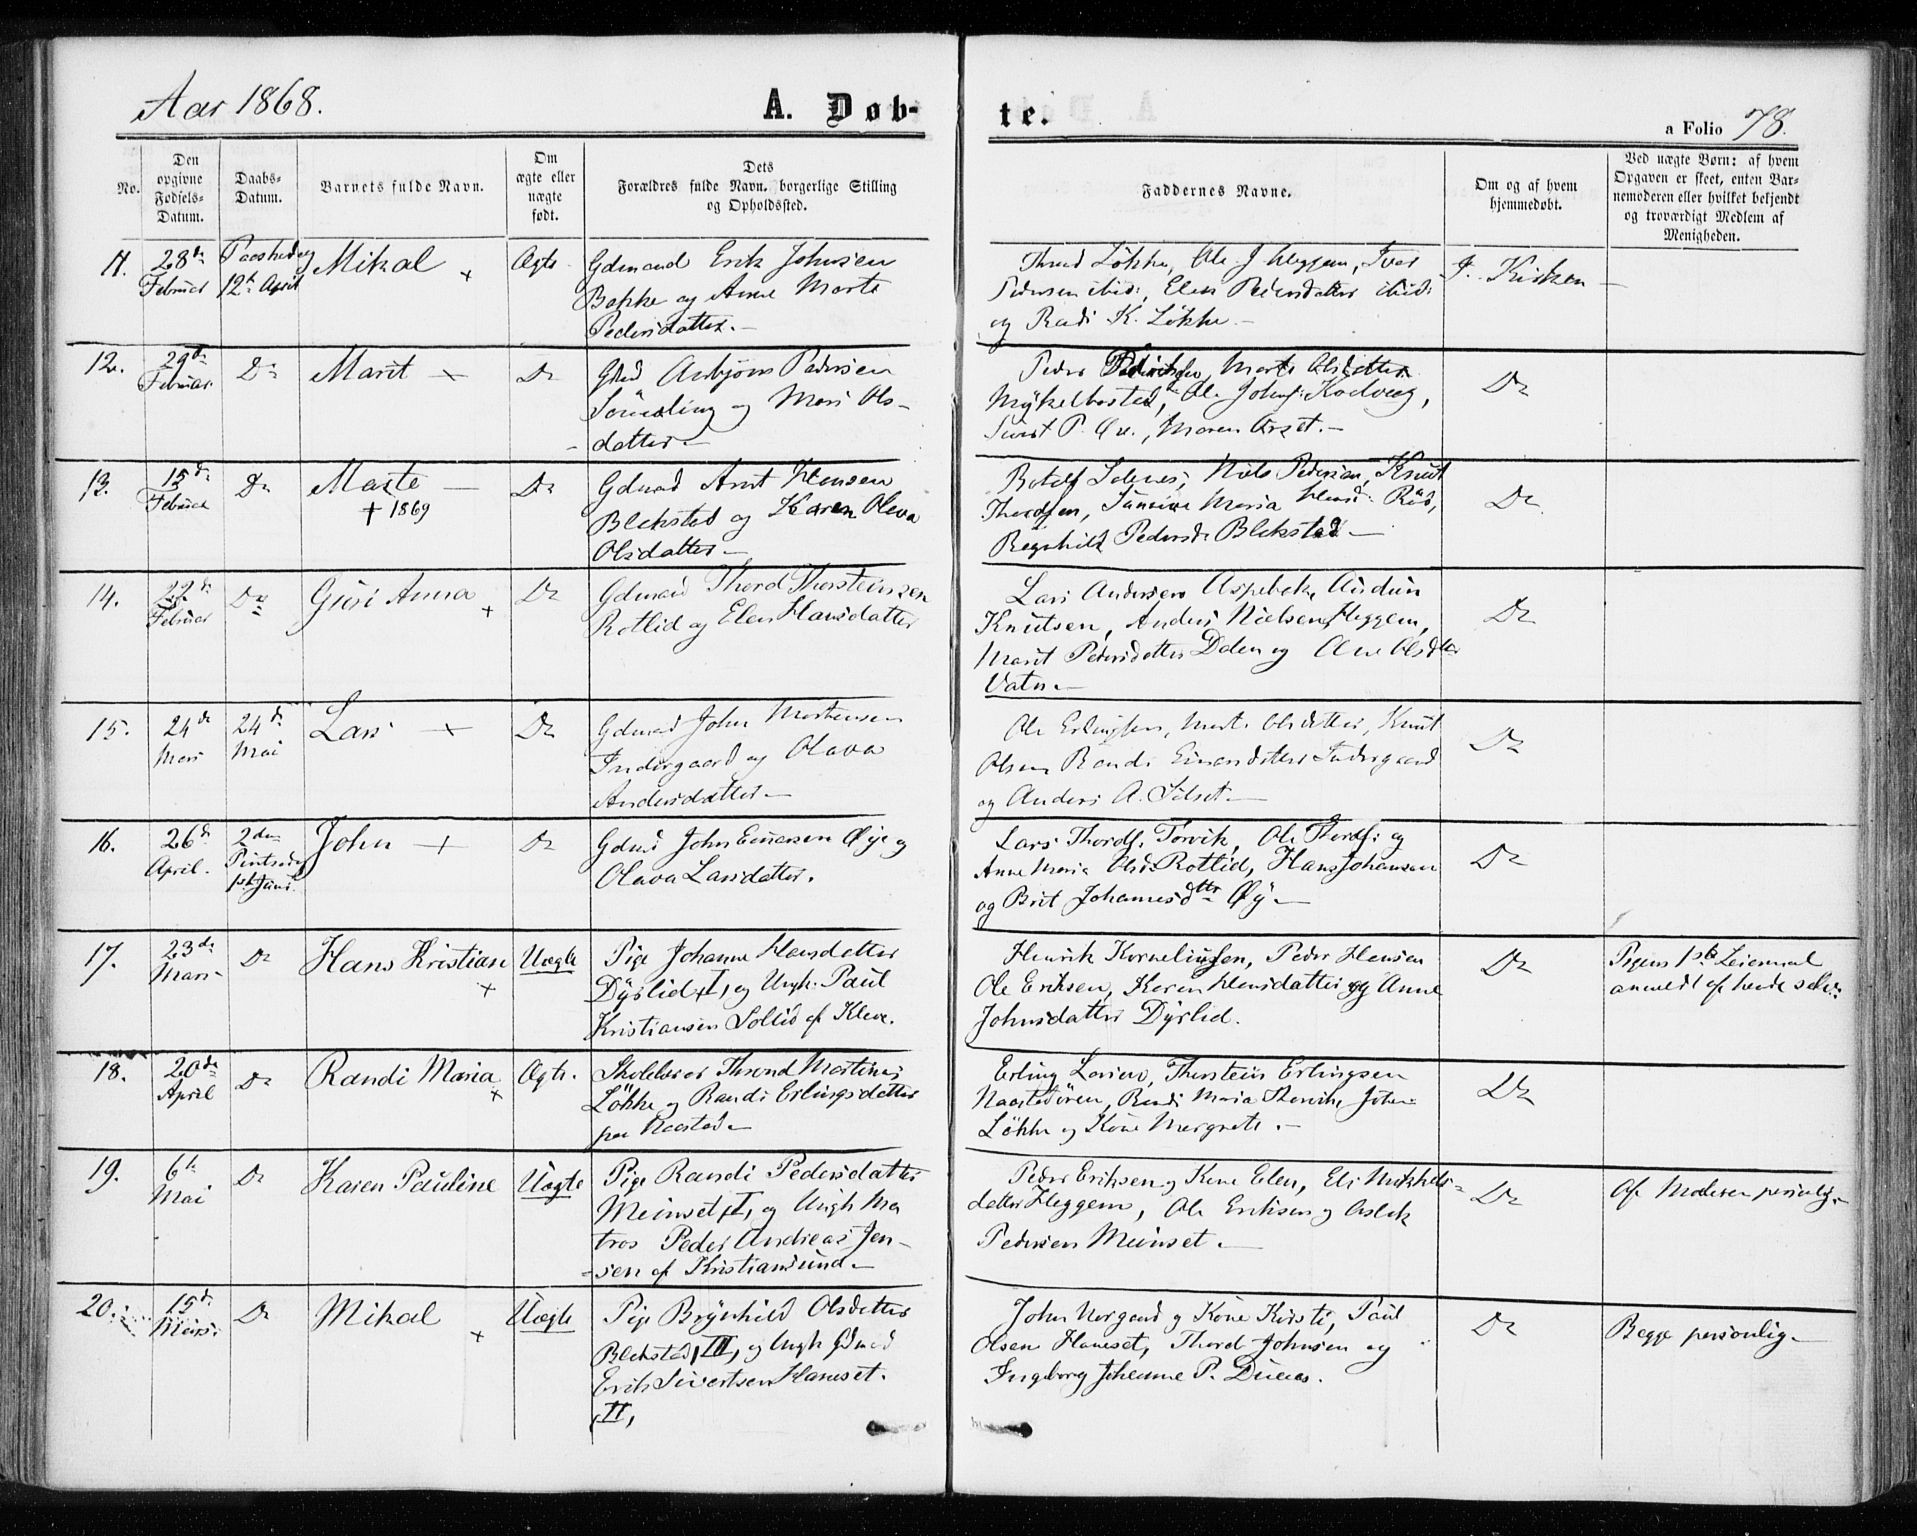 Aar 1868.
A. Døb-
te.
a Folio 78.
No.
Den opgivne Fødsels-Datum.
Daabs-Datum.
Barnets fulde Navn.
Om ægte eller uægte født.
Dets Forældres fulde Navn, borgerlige Stilling og Opholdssted.
Faddernes Navne.
Om og af hvem hjemmedøbt.
Ved uægte Børn: af hvem Opgaven er skeet, enten Barnemoderen eller hvilket bekjendt og troværdigt Medlem af Menigheden.
11.
28de
Februar
12te April
Mikal +
Ægte
Gdmand Erik Johnsen
Bakke og Anne Marte
Pedersdatter.
Løkke, Ole J. Heggem, Iver
Pedersen ibid:, Elen Pedersdatter ibid:
og Randi K. Løkke.
I Kirken
12.
29de
Februar
Do
Marit +
Do
Asbjørn Pedersen
og Mari Ols-
datter
Peder Marte Olsdatter
Myklebostad, Ole Johns:
Maren
Do
13.
15de
Februar
Do
Marte
+ 1869
Do
Gdmand Arnt Hansen
Blekstad og Karen Olava
Olsdatter
Solnes, Niels Pedersen, Knut
Thordsen, Maria
Pedersd: Blekstad
Do
14.
22de
Februar
Do
Guri Anna +
Do
Gdmand Thord Thorsteinsen
Rotlid og Elen Hansdatter
Lars Andersen Audun
Knutsen, Anders Nielsen Heggem,
Marit Pedersdatter Dalen og Ane Olsdtr
Vatn.
Do
15.
24de
Mars
24de
Mai
Lars +
Do
Gdmand John Mortensen
Indergaard og Olava
Andersdatter
Ole Erlingsen, Marte Olsdatter, Knut
Olsen, Randi Einarsdatter Indergaard
og Anders A. Silset.
Do
16.
26de
April.
2den
Pintsedag
1ste Juni
John +
Do
Gdmd John Einarsen Øye og
Olava Larsdatter.
Lars Thords: Torvik, Ole Thords: og
Anne Maria Olsd: Rotlid, Hans Johansen
og Brit Johannesdtr Øy.
Do
17.
23de
Mars
Do
Hans Kristian +
Uægte
Pige Johanne Hansdatter
Dyrlid, I, og Ungk: Paul
Kristiansen Sollid af Kleve.
Henrik Korneliussen, Peder Hansen
Ole Eriksen, Karen Hansdatter og Anne
Johnsdatter Dyrlid.
Do
Pigens 1ste Leiermaal
anmeldt af hende selv.
18.
20de
April
Do
Randi Maria +
Ægte.
Skolelærer Thrond Martinus
Løkke og Randi Erlingsdatter
paa Naastad
Erling Larsen, Thorstein Erlingsen
Naastadøren, Randi Maria Thorvik, John
Løkke og Kone Margrete.
Do
19.
6te
Mai
Do
Karen Pauline
Uægte
Pige Randi Pedersdatter
Meinset, I, og Ungk Ma
tros Peder Andreas Jen-
sen af Kristiansund.
Peder Eriksen og Kone Elen, Eli Mikkels-
datter Heggem, Ole Eriksen og Aslak
Pedersen Meinset.
Do
Af Moderen personlig.
20.
15de
Mars
Do
Mikal +
Uægte
Pige Brynhild Olsdatter
Blekstad, III, og Ungk Gdmand
Erik Sivertsen Hanset.
II,
John Norgaard og Kone Kirsti, Paul
Olsen Hanset, Thord Johnsen og
Ingeborg Johanne P.
Do
Begge personlig.